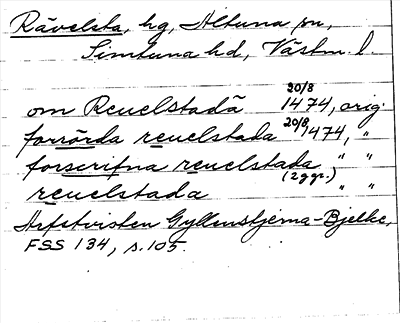 Rävelsta, hg, Altuna sn,
Simtuna hd, Västm. l.
om Reuelstadã 20/8 1474, orig.
forrörda reuelstada 20/8 1474, "
forscrifna reuelstada " "
reuelstada (2 ggr.) " "
Arfstvisten Gyllenstjerna-Bjelke,
FSS 134, s. 105.